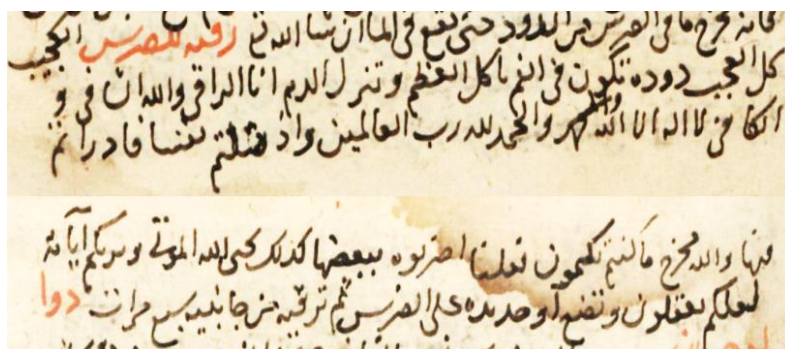 فانه يخرج ما في الضرس من الدود حتى يقع في الما ان شا الله تع رقيه للضرس العجيب
كل العجب دوده تكون في الفم تاكل العظم وتنزل الدم انا الراقي والله الشافي و
الكافي لا اله الا الله والله اكبر والحمد لله رب العالمين واذ قتلتم نفسا فادراتم
فيها والله مخرج ما كنتم تكتمون فقلنا اضربوه ببعضها كذلك يحي الله الموتى ويريكم آياته
لعلكم تعقلون وتضع حديده على الضرس ثم ترقيه من جانبيه سبع مرات دوا